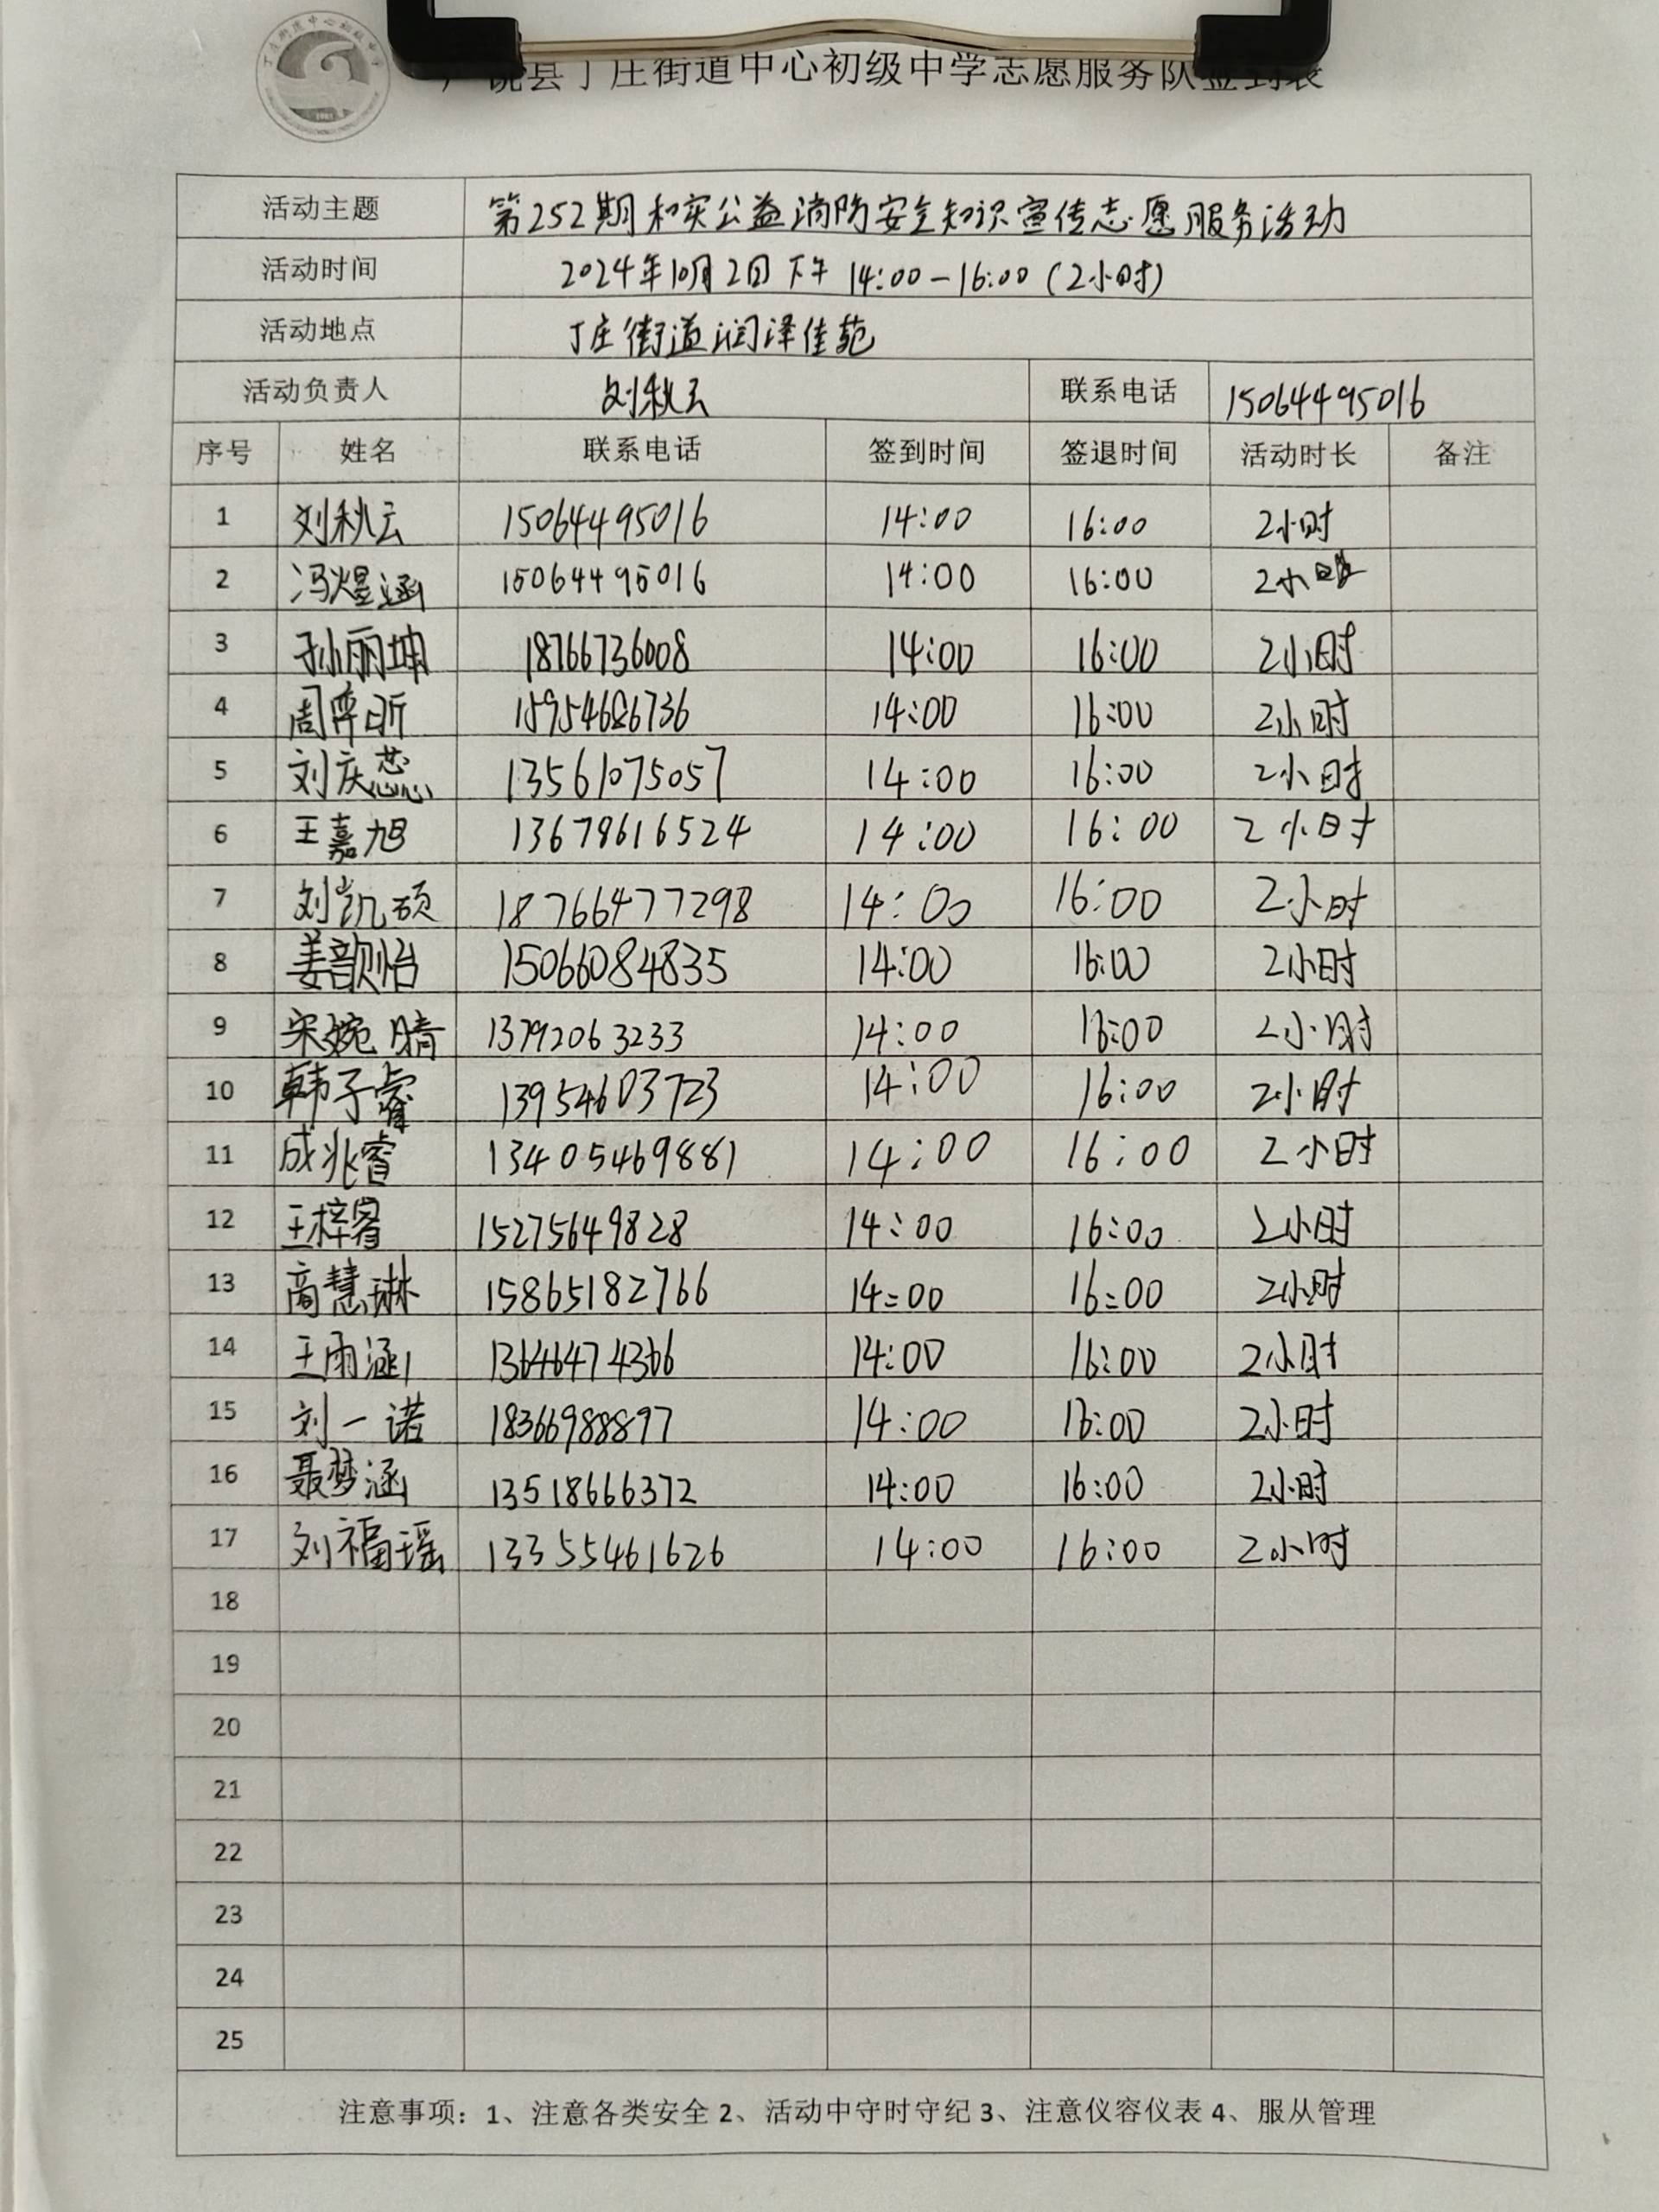 广饶县丁庄街道中心初级中学志愿服务队签到表
活动主题 第252期和实公益消防安全知识宣传志愿服务活动
活动时间 2024年10月2日下午 14:00-16:00(2小时)
活动地点 丁庄街道润泽佳苑
活动负责人 刘秋云 联系电话 15064495016
序号 姓名 联系电话 签到时间 签退时间 活动时长 备注
1 刘秋云 15064495016 14:00 16:00 2小时
2 冯煜涵 15064495016 14:00 16:00 2小时
3 孙丽坤 18766736008 14:00 16:00 2小时
4 周霁昕 15954686736 14:00 16:00 2小时
5 刘庆蕊 13561075057 14:00 16:00 2小时
6 王嘉旭 13678616524 14:00 16:00 2小时
7 刘凯硕 18766477298 14:00 16:00 2小时
8 姜歆怡 15066084835 14:00 16:00 2小时
9 宋婉晴 13792063233 14:00 16:00 2小时
10 韩子睿 13954603723 14:00 16:00 2小时
11 成兆睿 13405469881 14:00 16:00 2小时
12 王梓睿 15275649828 14:00 16:00 2小时
13 商慧琳 15865182766 14:00 16:00 2小时
14 王雨涵 13646474366 14:00 16:00 2小时
15 刘一诺 18366988897 14:00 16:00 2小时
16 聂梦涵 13518666372 14:00 16:00 2小时
17 刘福瑶 13355461626 14:00 16:00 2小时
18
19
20
21
22
23
24
25
注意事项：1、注意各类安全 2、活动中守时守纪 3、注意仪容仪表 4、服从管理